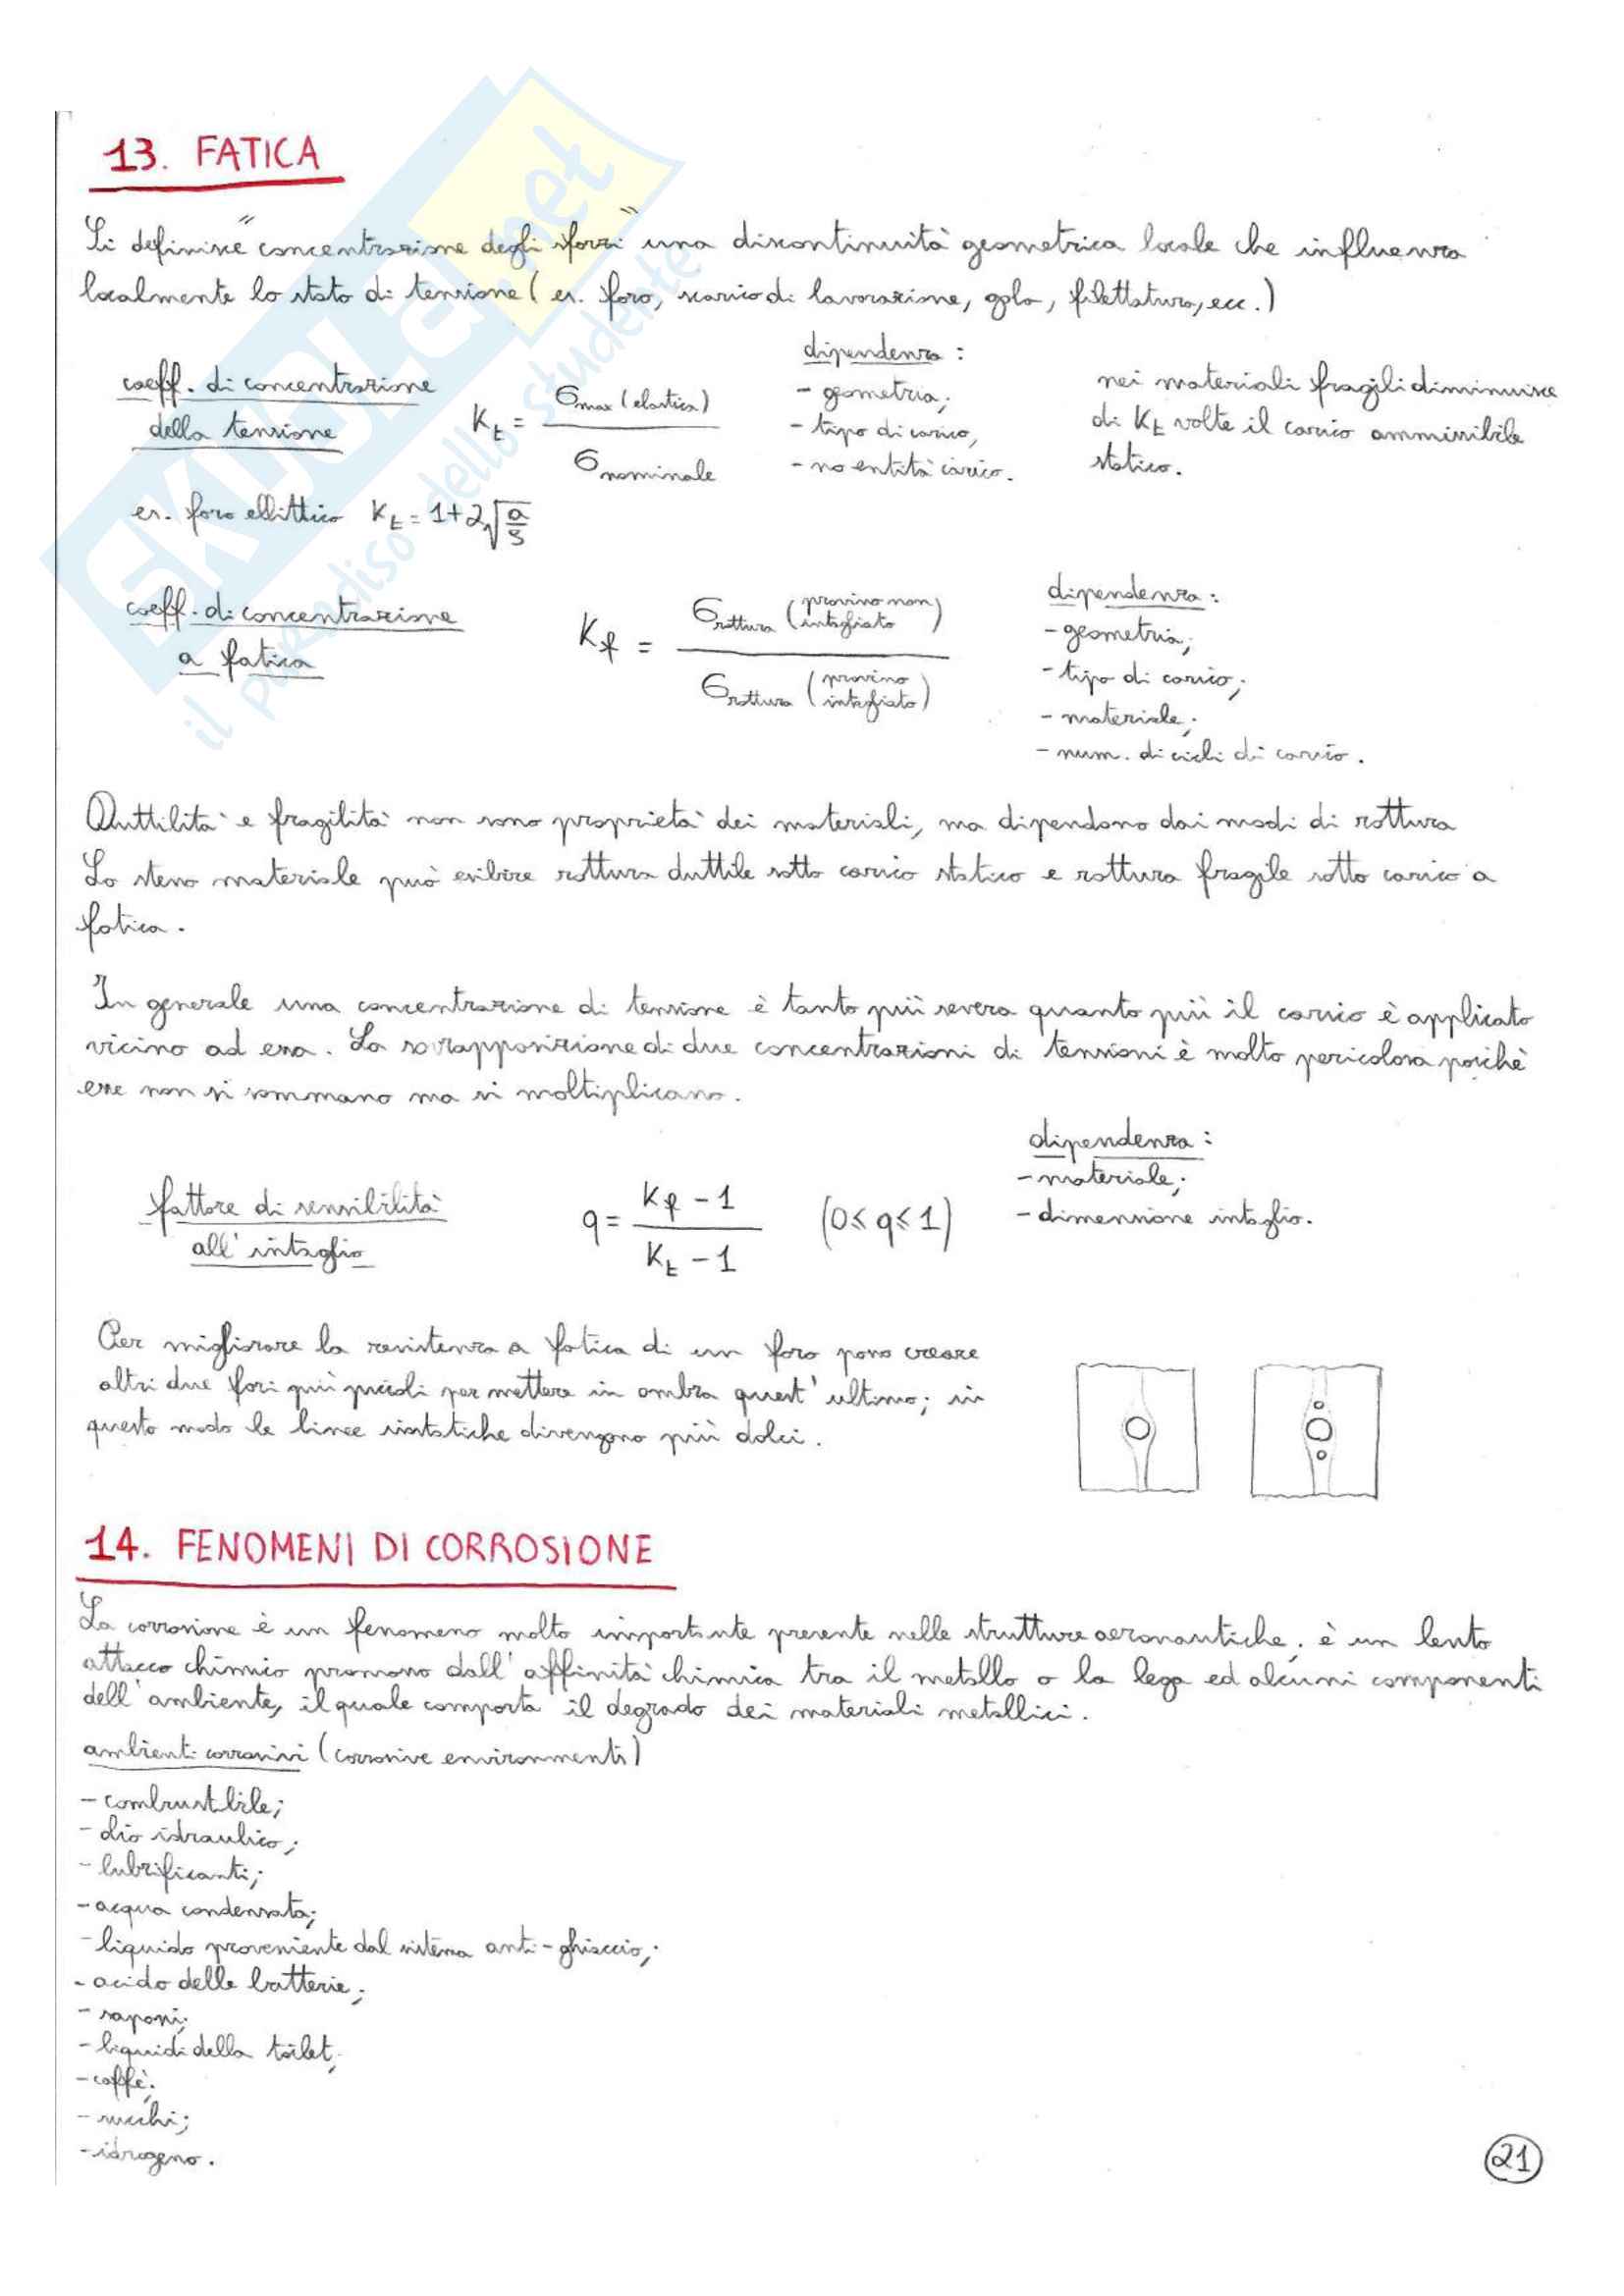 13. FATICA
Si definisce "concentrazione degli sforzi" una discontinuità geometrica locale che influenza
localmente lo stato di tensione (es. foro, scarico di lavorazione, gola, filettatura, ecc.)
coeff. di concentrazione
della tensione
Kt = σmax (elastica) / σnominale
dipendenza:
- geometria;
- tipo di carico,
- no entità carico.
nei materiali fragili diminuisce
di Kt volte il carico ammissibile
statico.
es. foro ellittico Kt = 1+2√(a/ρ)
coeff. di concentrazione
a fatica
Kf = σrottura (provino non intagliato) / σrottura (provino intagliato)
dipendenza:
- geometria;
- tipo di carico;
- materiale;
- num. di cicli di carico.
Duttilità e fragilità non sono proprietà dei materiali, ma dipendono dai modi di rottura
Lo stesso materiale può esibire rottura duttile sotto carico statico e rottura fragile sotto carico a
fatica.
In generale una concentrazione di tensione è tanto più severa quanto più il carico è applicato
vicino ad essa. La sovrapposizione di due concentrazioni di tensioni è molto pericolosa poichè
esse non si sommano ma si moltiplicano.
fattore di sensibilità
all'intaglio
q = (Kf - 1) / (Kt - 1) (0≤q≤1)
dipendenza:
- materiale;
- dimensione intaglio.
Per migliorare la resistenza a fatica di un foro posso creare
altri due fori più piccoli per mettere in ombra quest'ultimo; in
questo modo le linee isostatiche divengono più dolci.
14. FENOMENI DI CORROSIONE
La corrosione è un fenomeno molto importante presente nelle strutture aeronautiche; è un lento
attacco chimico promosso dall'affinità chimica tra il metallo o la lega ed alcuni componenti
dell'ambiente, il quale comporta il degrado dei materiali metallici.
ambienti corrosivi (corrosive environments)
- combustibile;
- olio idraulico;
- lubrificanti;
- acqua condensata;
- liquido proveniente dal sistema anti-ghiaccio;
- acido delle batterie;
- saponi;
- liquidi della toilet;
- caffè;
- succhi;
- idrogeno.
21
SKUOLA.net
il paradiso dello studente